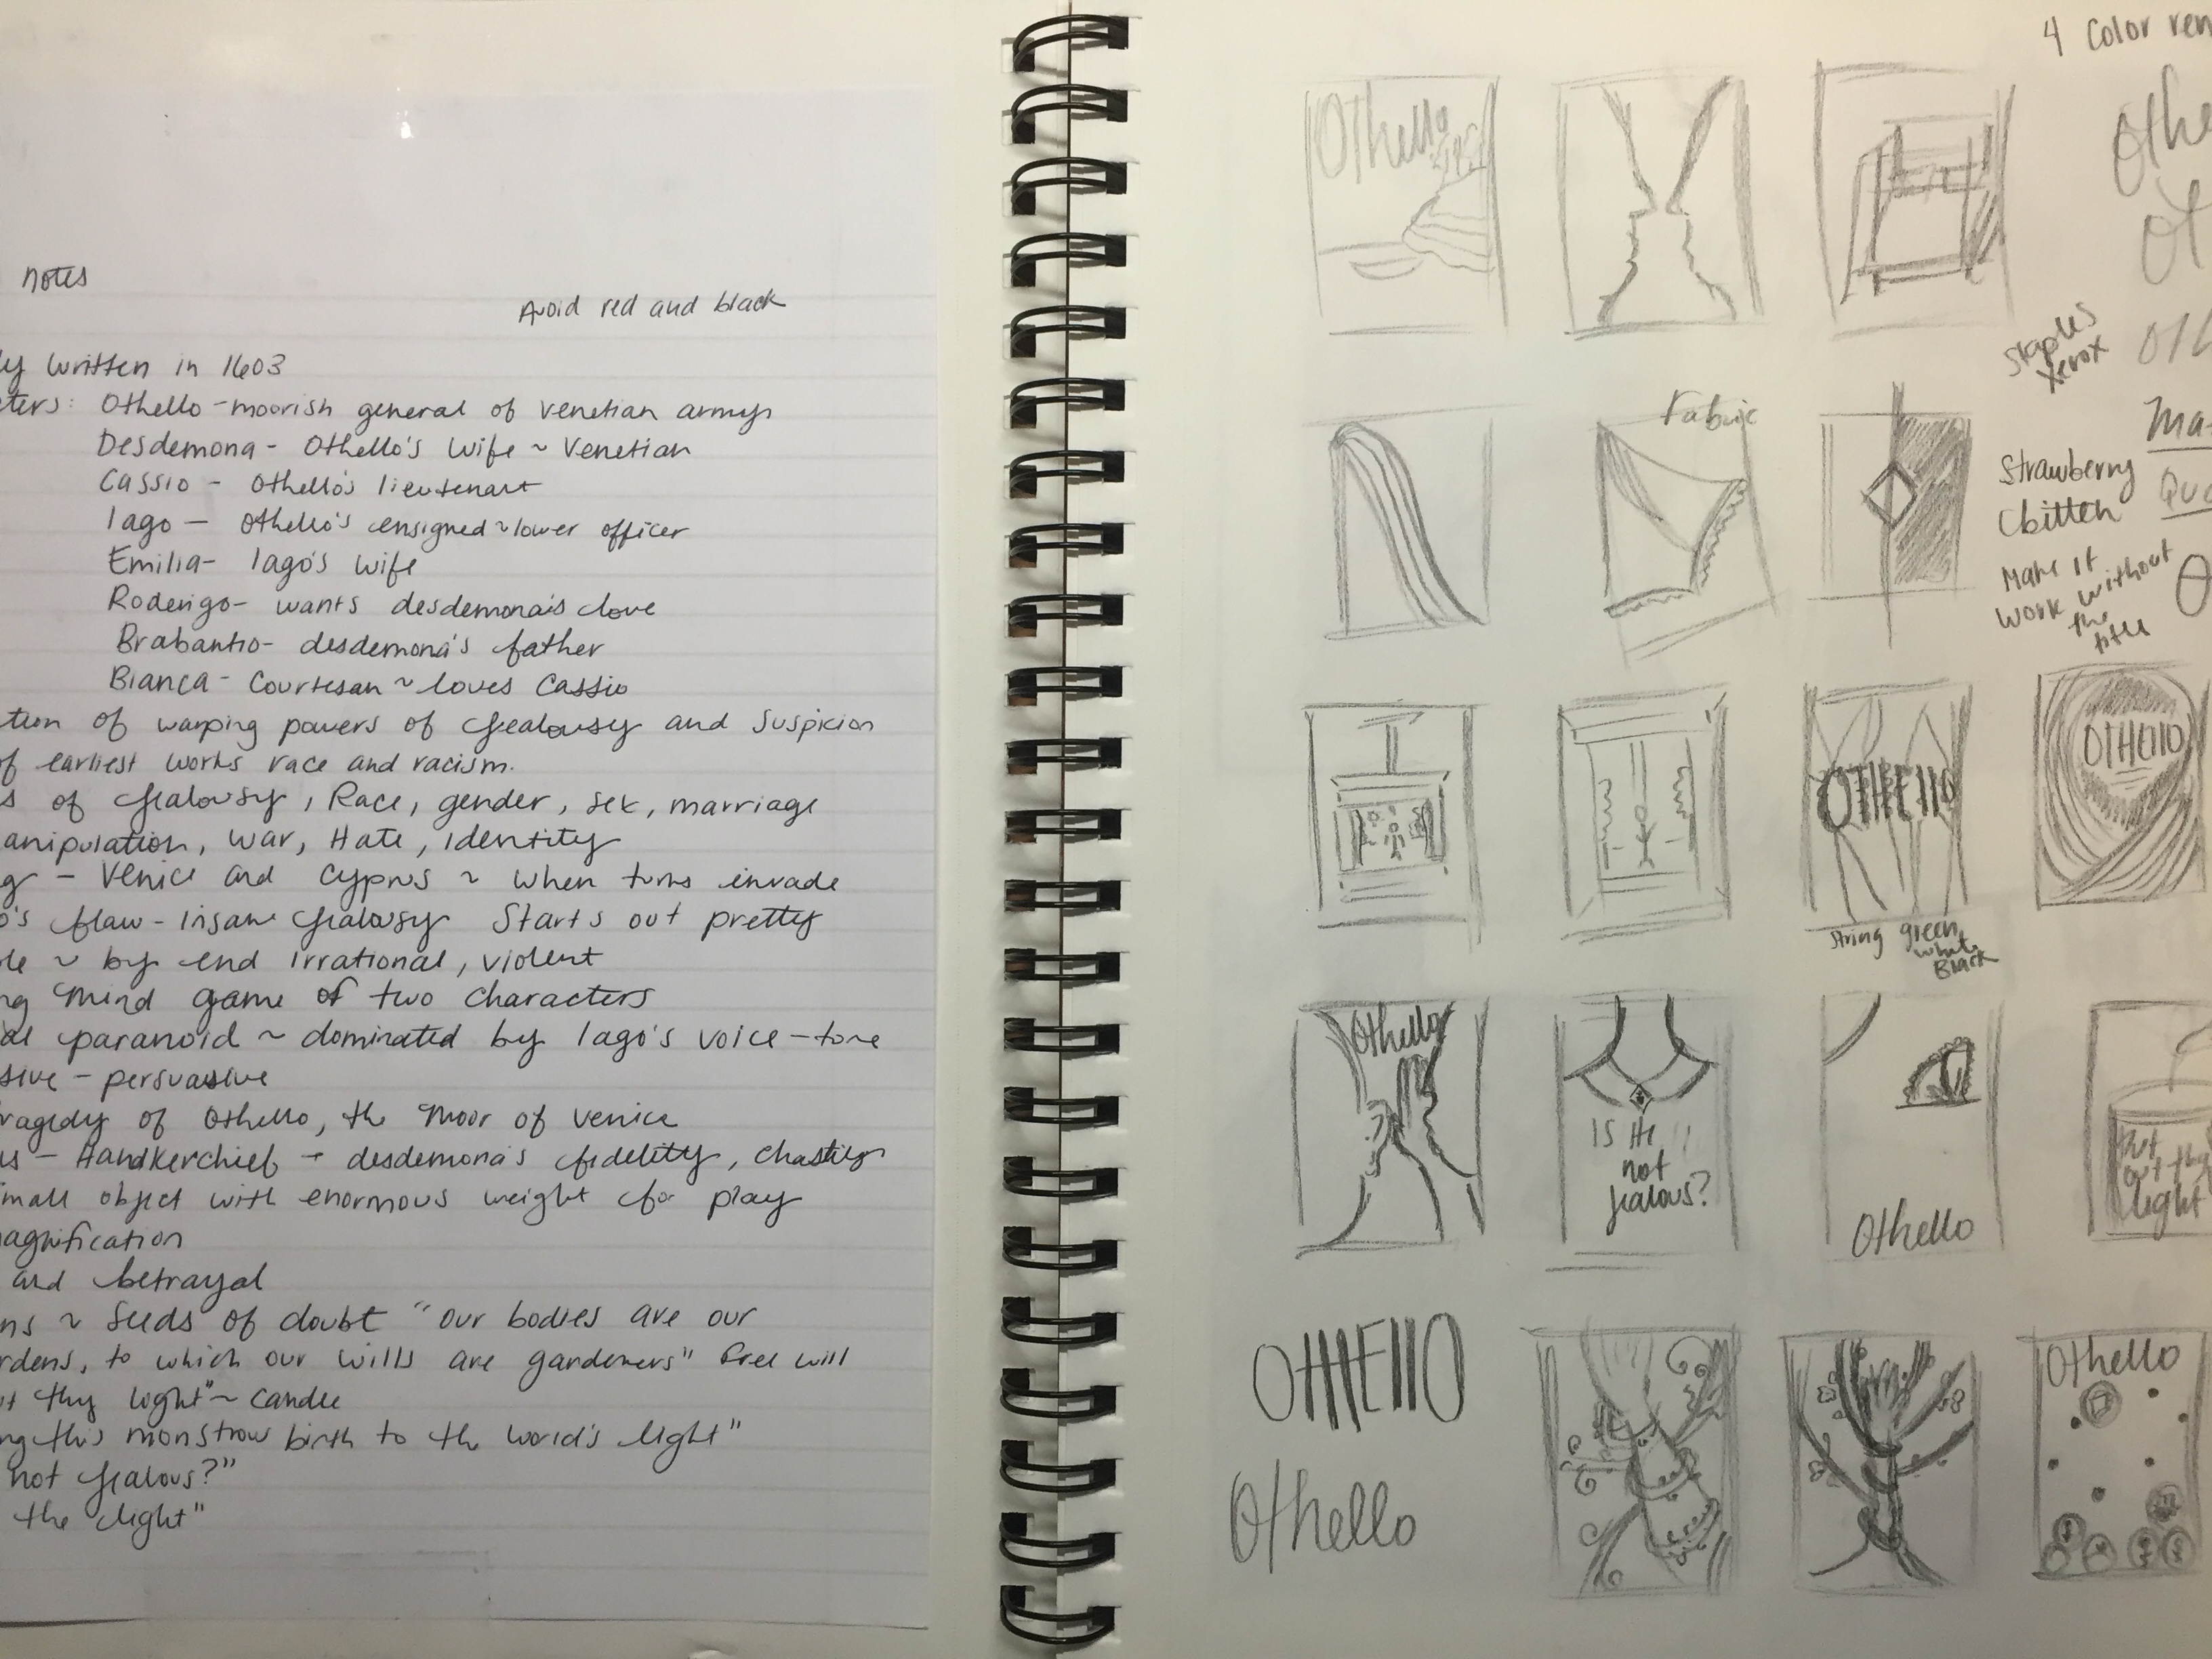 notes
Avoid red and black
ly written in 1603
cters: Othello - moorish general of venetian army
Desdemona - Othello's wife ~ Venetian
Cassio - Othello's lieutenant
Iago - Othello's ensigned ~ lower officer
Emilia - Iago's wife
Roderigo - wants desdemona's love
Brabantio - desdemona's father
Bianca - Courtesan ~ loves Cassio
tion of warping powers of Jealousy and Suspicion
of earliest works race and racism.
s of Jealousy, Race, gender, sex, marriage
anipulation, war, Hate, Identity
g - Venice and Cyprus ~ when turks invade
o's flaw - insane Jealousy Starts out pretty
le ~ by end irrational, violent
ng mind game of two characters
al paranoid ~ dominated by Iago's voice - tone
sive - persuasive
ragedy of Othello, the Moor of Venice
us - Handkerchief - desdemona's fidelity, chastity
small object with enormous weight for play
agnification
and betrayal
ns ~ Seeds of doubt "our bodies are our
rdens, to which our wills are gardeners" Free will
ut thy light" ~ candle
ng this monstrous birth to the world's light"
not jealous?"
the light"
4 Color ren
Othello
Othe
Ot
Staples
Xerox
Oth
Fabric
Strawberry
bitten
Ma
Quo
Make it
work without
the
title
O
OTHEllO
OTHEllO
String green,
white,
Black
Othello
IS He
not
jealous?
Othello
Put
out thy
light
OTHEllO
Othello
Othello